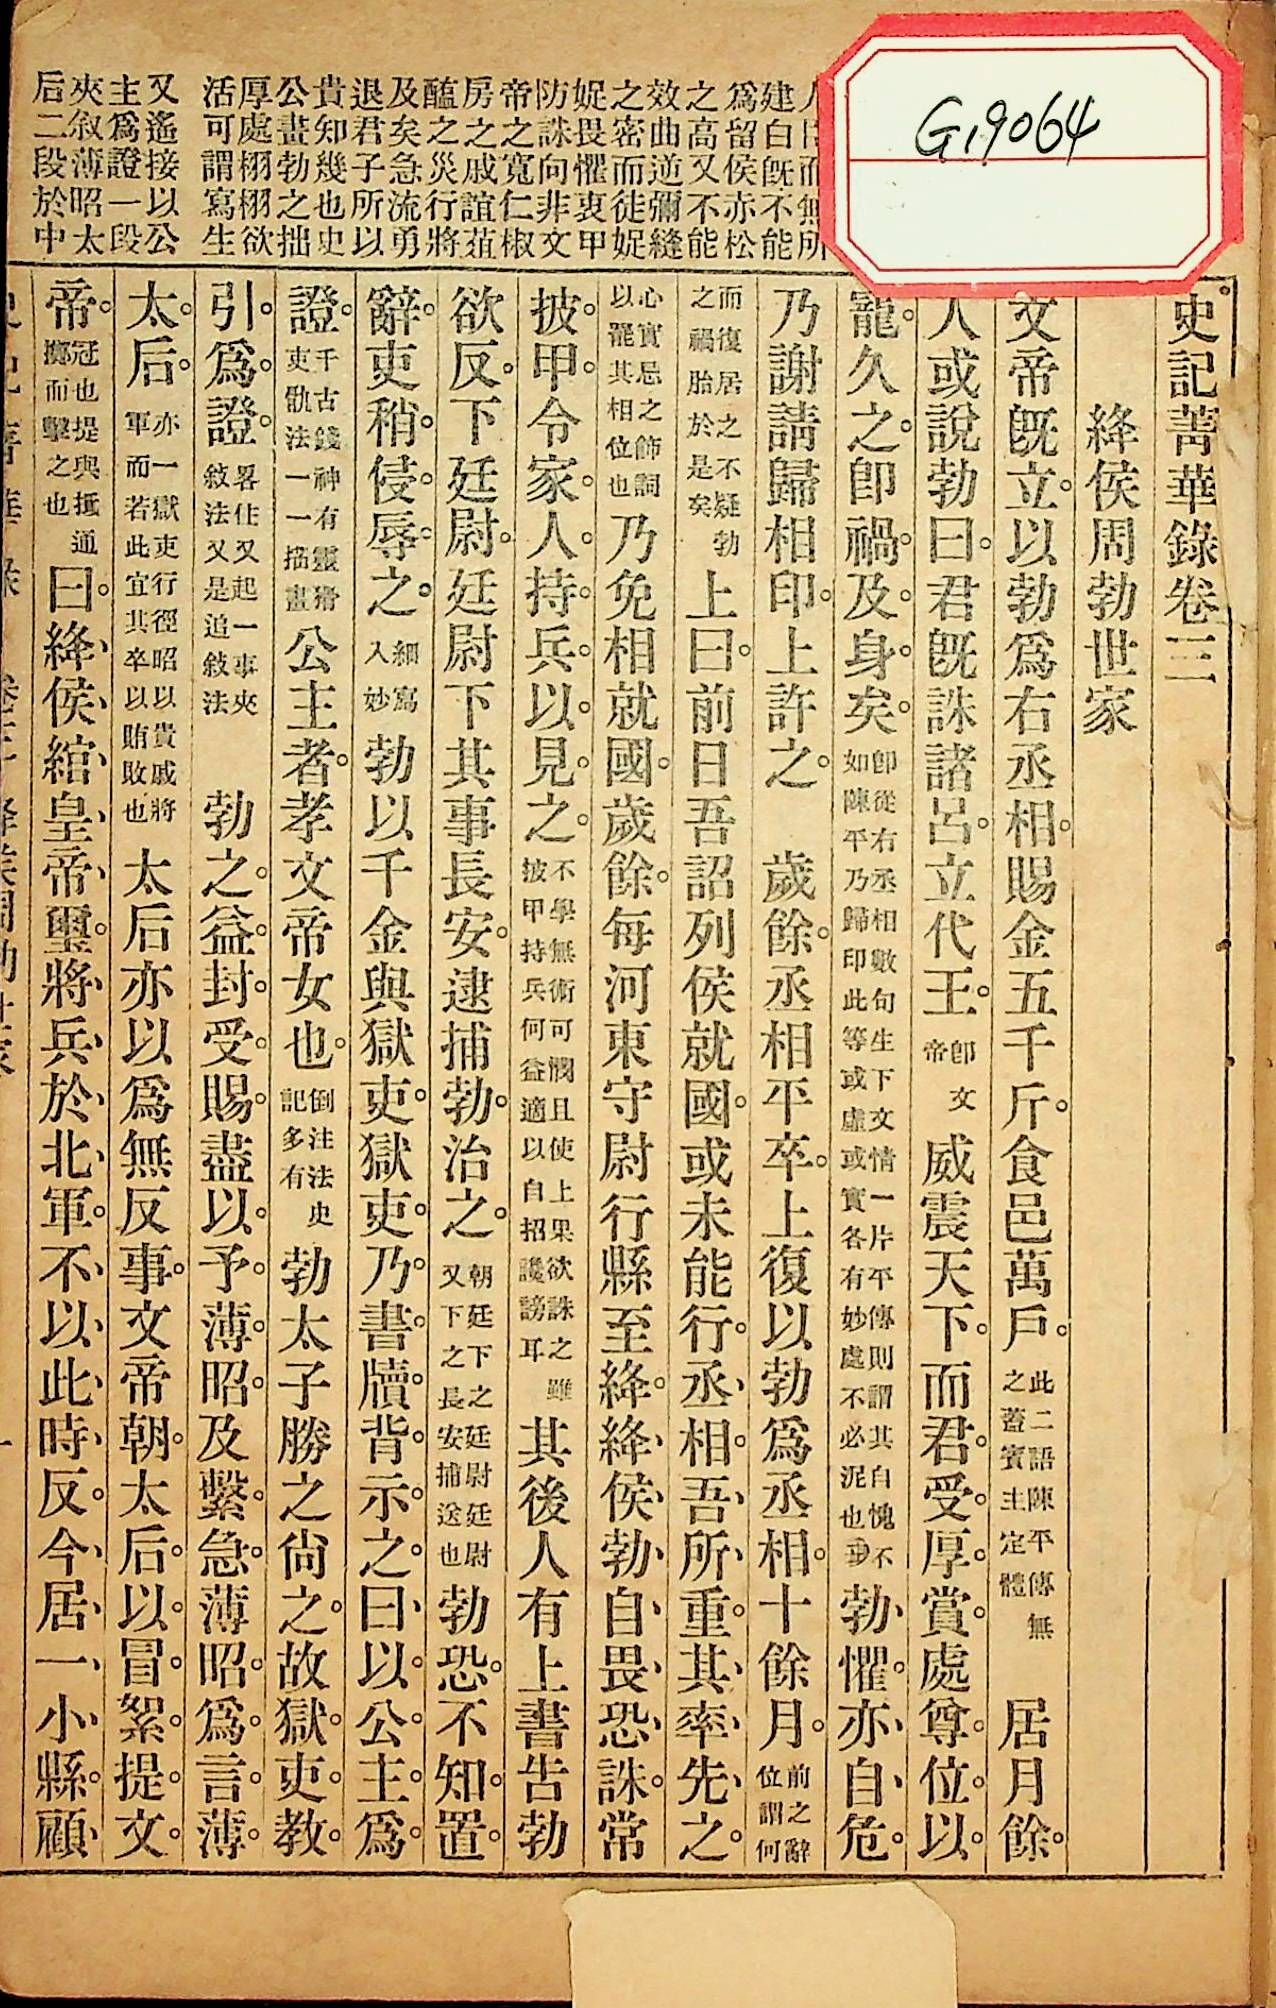 G19064
而無所
建白旣不能
爲留侯赤松
之高又不能
效曲逆彌縫
之密而徒娖
娖畏懼衷甲
防誅向非文
帝之寬仁椒
房之戚誼葅
醢之災行將
及矣急流勇
退君子所以
貴知幾也史
公畫勃之拙
厚處栩栩欲
活可謂寫生
又遙接以公
主爲證一段
夾叙薄昭太
后二段於中
史記菁華錄卷三
絳侯周勃世家
文帝旣立以勃爲右丞相賜金五千斤食邑萬戶此二語陳平傳無之蓋賓主定體居月餘
人或說勃曰君旣誅諸呂立代王卽文帝威震天下而君受厚賞處尊位以
寵久之卽禍及身矣卽從右丞相數句生下文情一片平傳則謂其自愧不如陳平乃歸印此等或虛或實各有妙處不必泥也勃懼亦自危
乃謝請歸相印上許之歲餘丞相平卒上復以勃爲丞相十餘月前之辭位謂何
而復居之不疑勃之禍胎於是矣上曰前日吾詔列侯就國或未能行丞相吾所重其率先之
心實忌之飾詞以罷其相位也乃免相就國歲餘每河東守尉行縣至絳絳侯勃自畏恐誅常
披甲令家人持兵以見之不學無術可憫且使上果欲誅之雖披甲持兵何益適以自招讒謗耳其後人有上書告勃
欲反下廷尉廷尉下其事長安逮捕勃治之朝廷下之廷尉廷尉又下之長安捕送也勃恐不知置
辭吏稍侵辱之細寫入妙勃以千金與獄吏獄吏乃書牘背示之曰以公主爲
證千古錢神有靈猾吏骩法一一描畫公主者孝文帝女也倒注法史記多有勃太子勝之尙之故獄吏教
引爲證畧住又起一事夾敍法又是追敍法勃之益封受賜盡以予薄昭及繫急薄昭爲言薄
太后亦一獄吏行徑昭以貴戚將軍而若此宜其卒以賄敗也太后亦以爲無反事文帝朝太后以冒絮提文
帝冠也提與抵通擲而擊之也曰絳侯綰皇帝璽將兵於北軍不以此時反今居一小縣顧